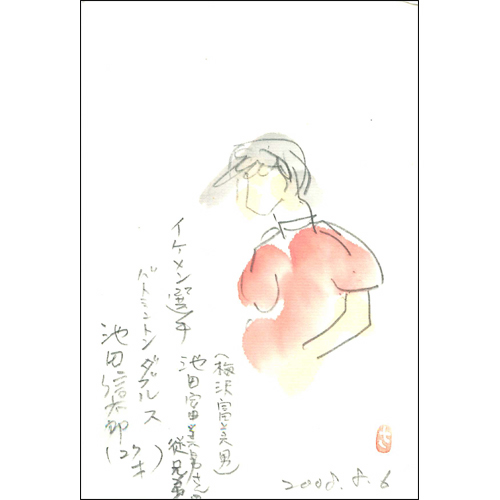 イケメン選手
(梅沢富美男)
池田富美男さんの
従兄弟
バドミントンダブルス
池田信太郎(27才)
2008.8.6